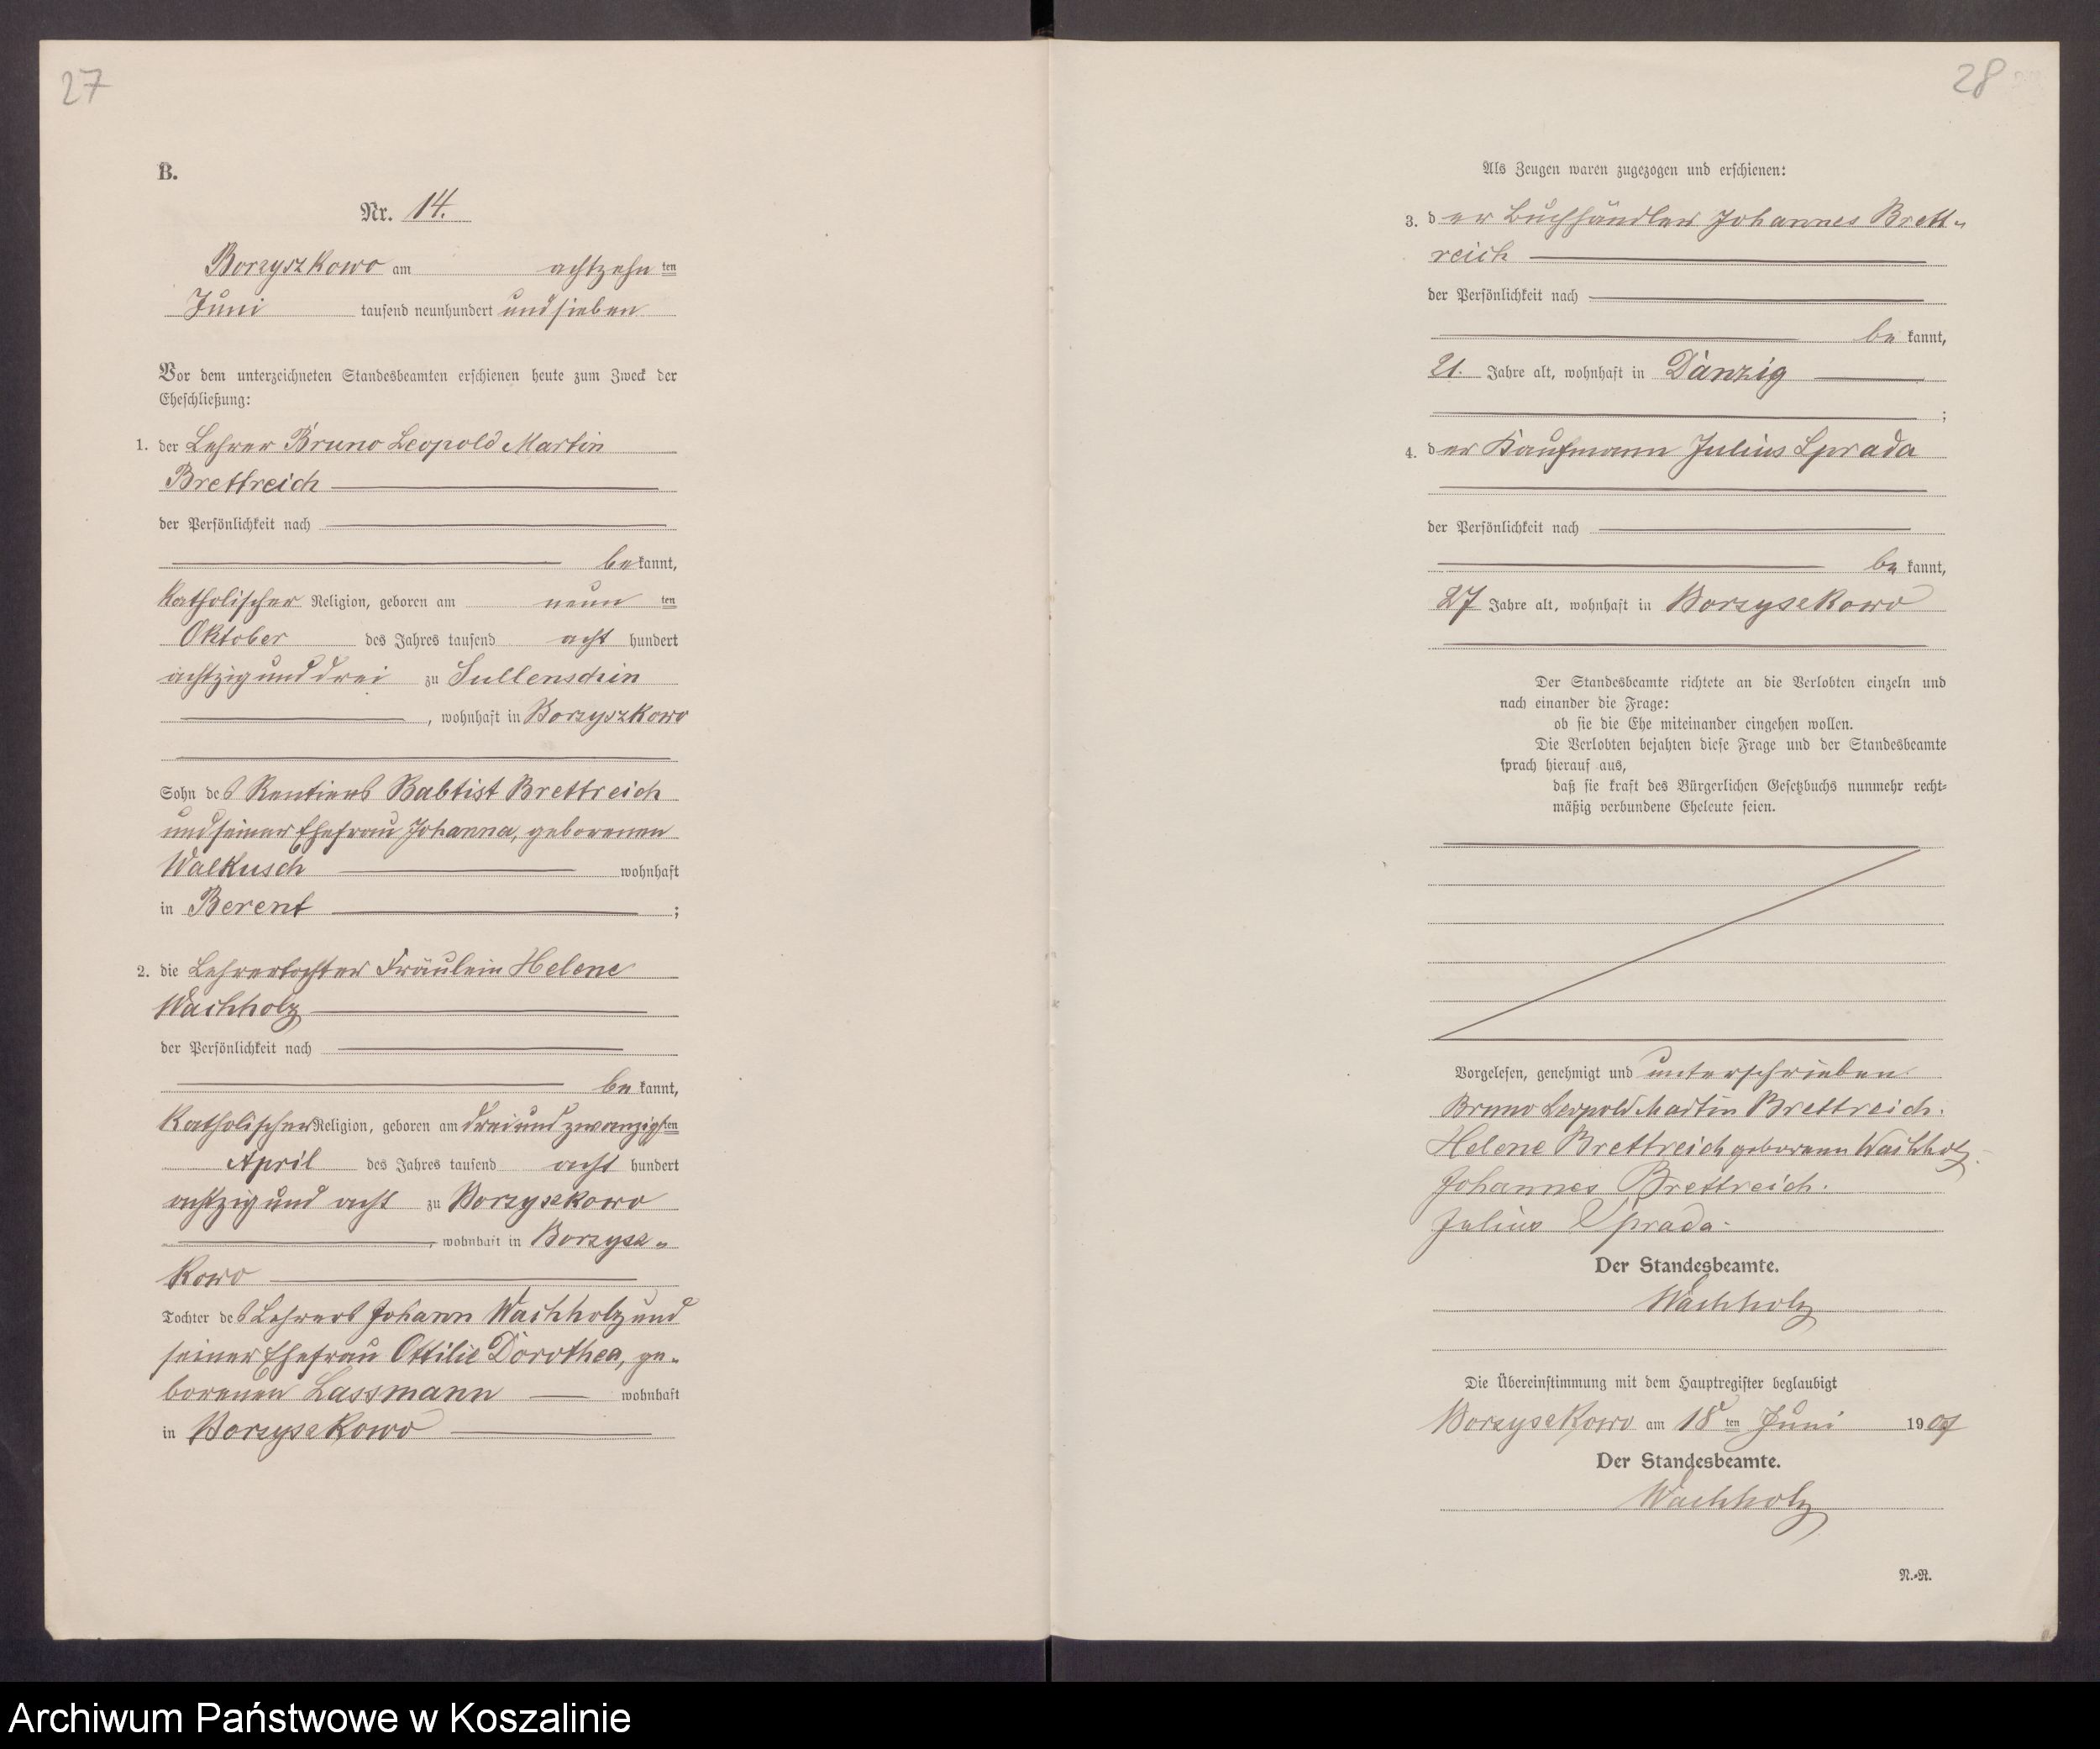 27
B.
Nr. 14.
Borzyszkowo am achtzehn ten
Juni tausend neunhundert und sieben
Vor dem unterzeichneten Standesbeamten erschienen heute zum Zweck der
Eheschließung:
1. der Lehrer Bruno Leopold Martin
Brettreich
der Persönlichkeit nach
be kannt,
katholischer Religion, geboren am neun ten
Oktober des Jahres tausend acht hundert
achtzig und drei zu Sullenschin
, wohnhaft in Borzyszkowo
Sohn des Rentiers Babtist Brettreich
und seiner Ehefrau Johanna, geborenen
Walkusch wohnhaft
in Berent ;
2. die Lehrertochter Fräulein Helene
Wachholz
der Persönlichkeit nach
be kannt,
katholischer Religion, geboren am drei und zwanzigsten
April des Jahres tausend acht hundert
achtzig und acht zu Borzyszkowo
, wohnhaft in Borzysz-
kowo
Tochter des Lehrers Johann Wachholz und
seiner Ehefrau Ottilie Dorothea, ge-
borenen Lassmann wohnhaft
in Borzyszkowo
28
Als Zeugen waren zugezogen und erschienen:
3. der Buchhändler Johannes Brett-
reich
der Persönlichkeit nach
be kannt,
21. Jahre alt, wohnhaft in Danzig
;
4. der Kaufmann Julius Sprada
der Persönlichkeit nach
be kannt,
27 Jahre alt, wohnhaft in Borzyszkowo
Der Standesbeamte richtete an die Verlobten einzeln und
nach einander die Frage:
ob sie die Ehe miteinander eingehen wollen.
Die Verlobten bejahten diese Frage und der Standesbeamte
sprach hierauf aus,
daß sie kraft des Bürgerlichen Gesetzbuchs nunmehr recht-
mäßig verbundene Eheleute seien.
Vorgelesen, genehmigt und unterschrieben
Bruno Leopold Martin Brettreich.
Helene Brettreich geborene Wachholz.
Johannes Brettreich.
Julius Sprada.
Der Standesbeamte.
Wachholz
Die Übereinstimmung mit dem Hauptregister beglaubigt
Borzyszkowo am 18 ten Juni 1907
Der Standesbeamte.
Wachholz
N.-R.
Archiwum Państwowe w Koszalinie